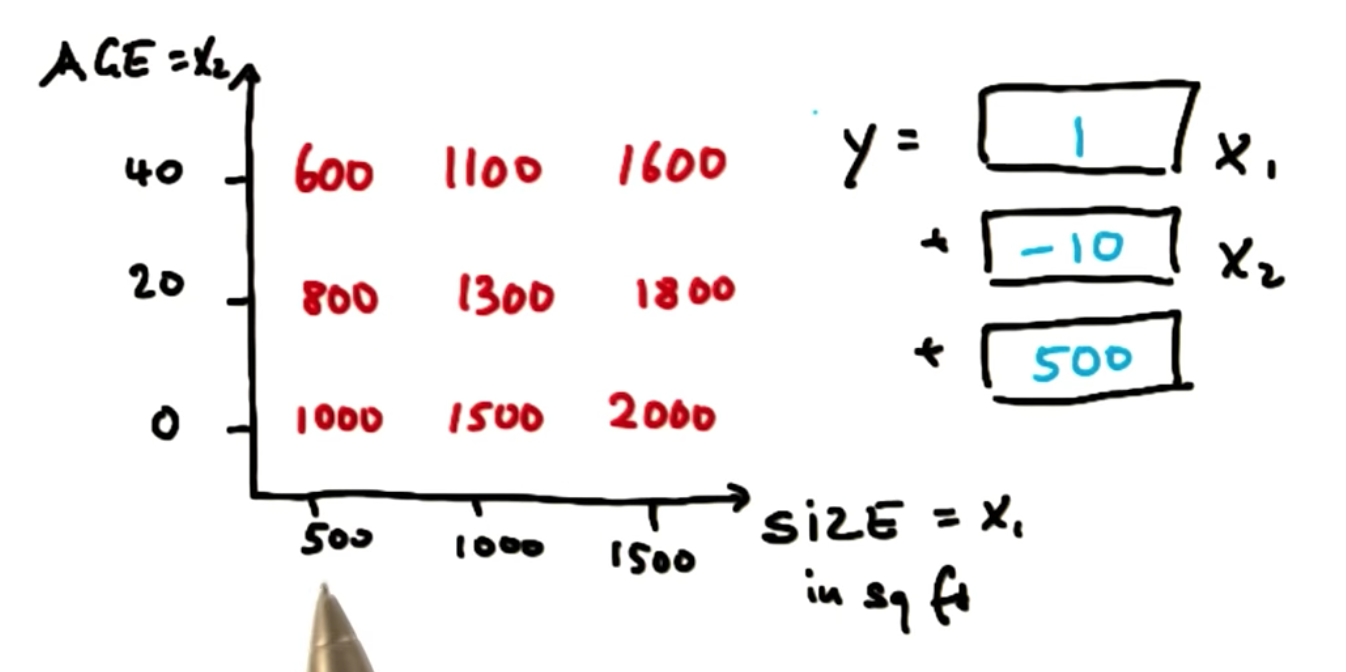 AGE = X₂
40 600 1100 1600
20 800 1300 1800
0 1000 1500 2000
500 1000 1500
SiZE = X₁
in sq ft
y = 1 X₁
+ -10 X₂
+ 500